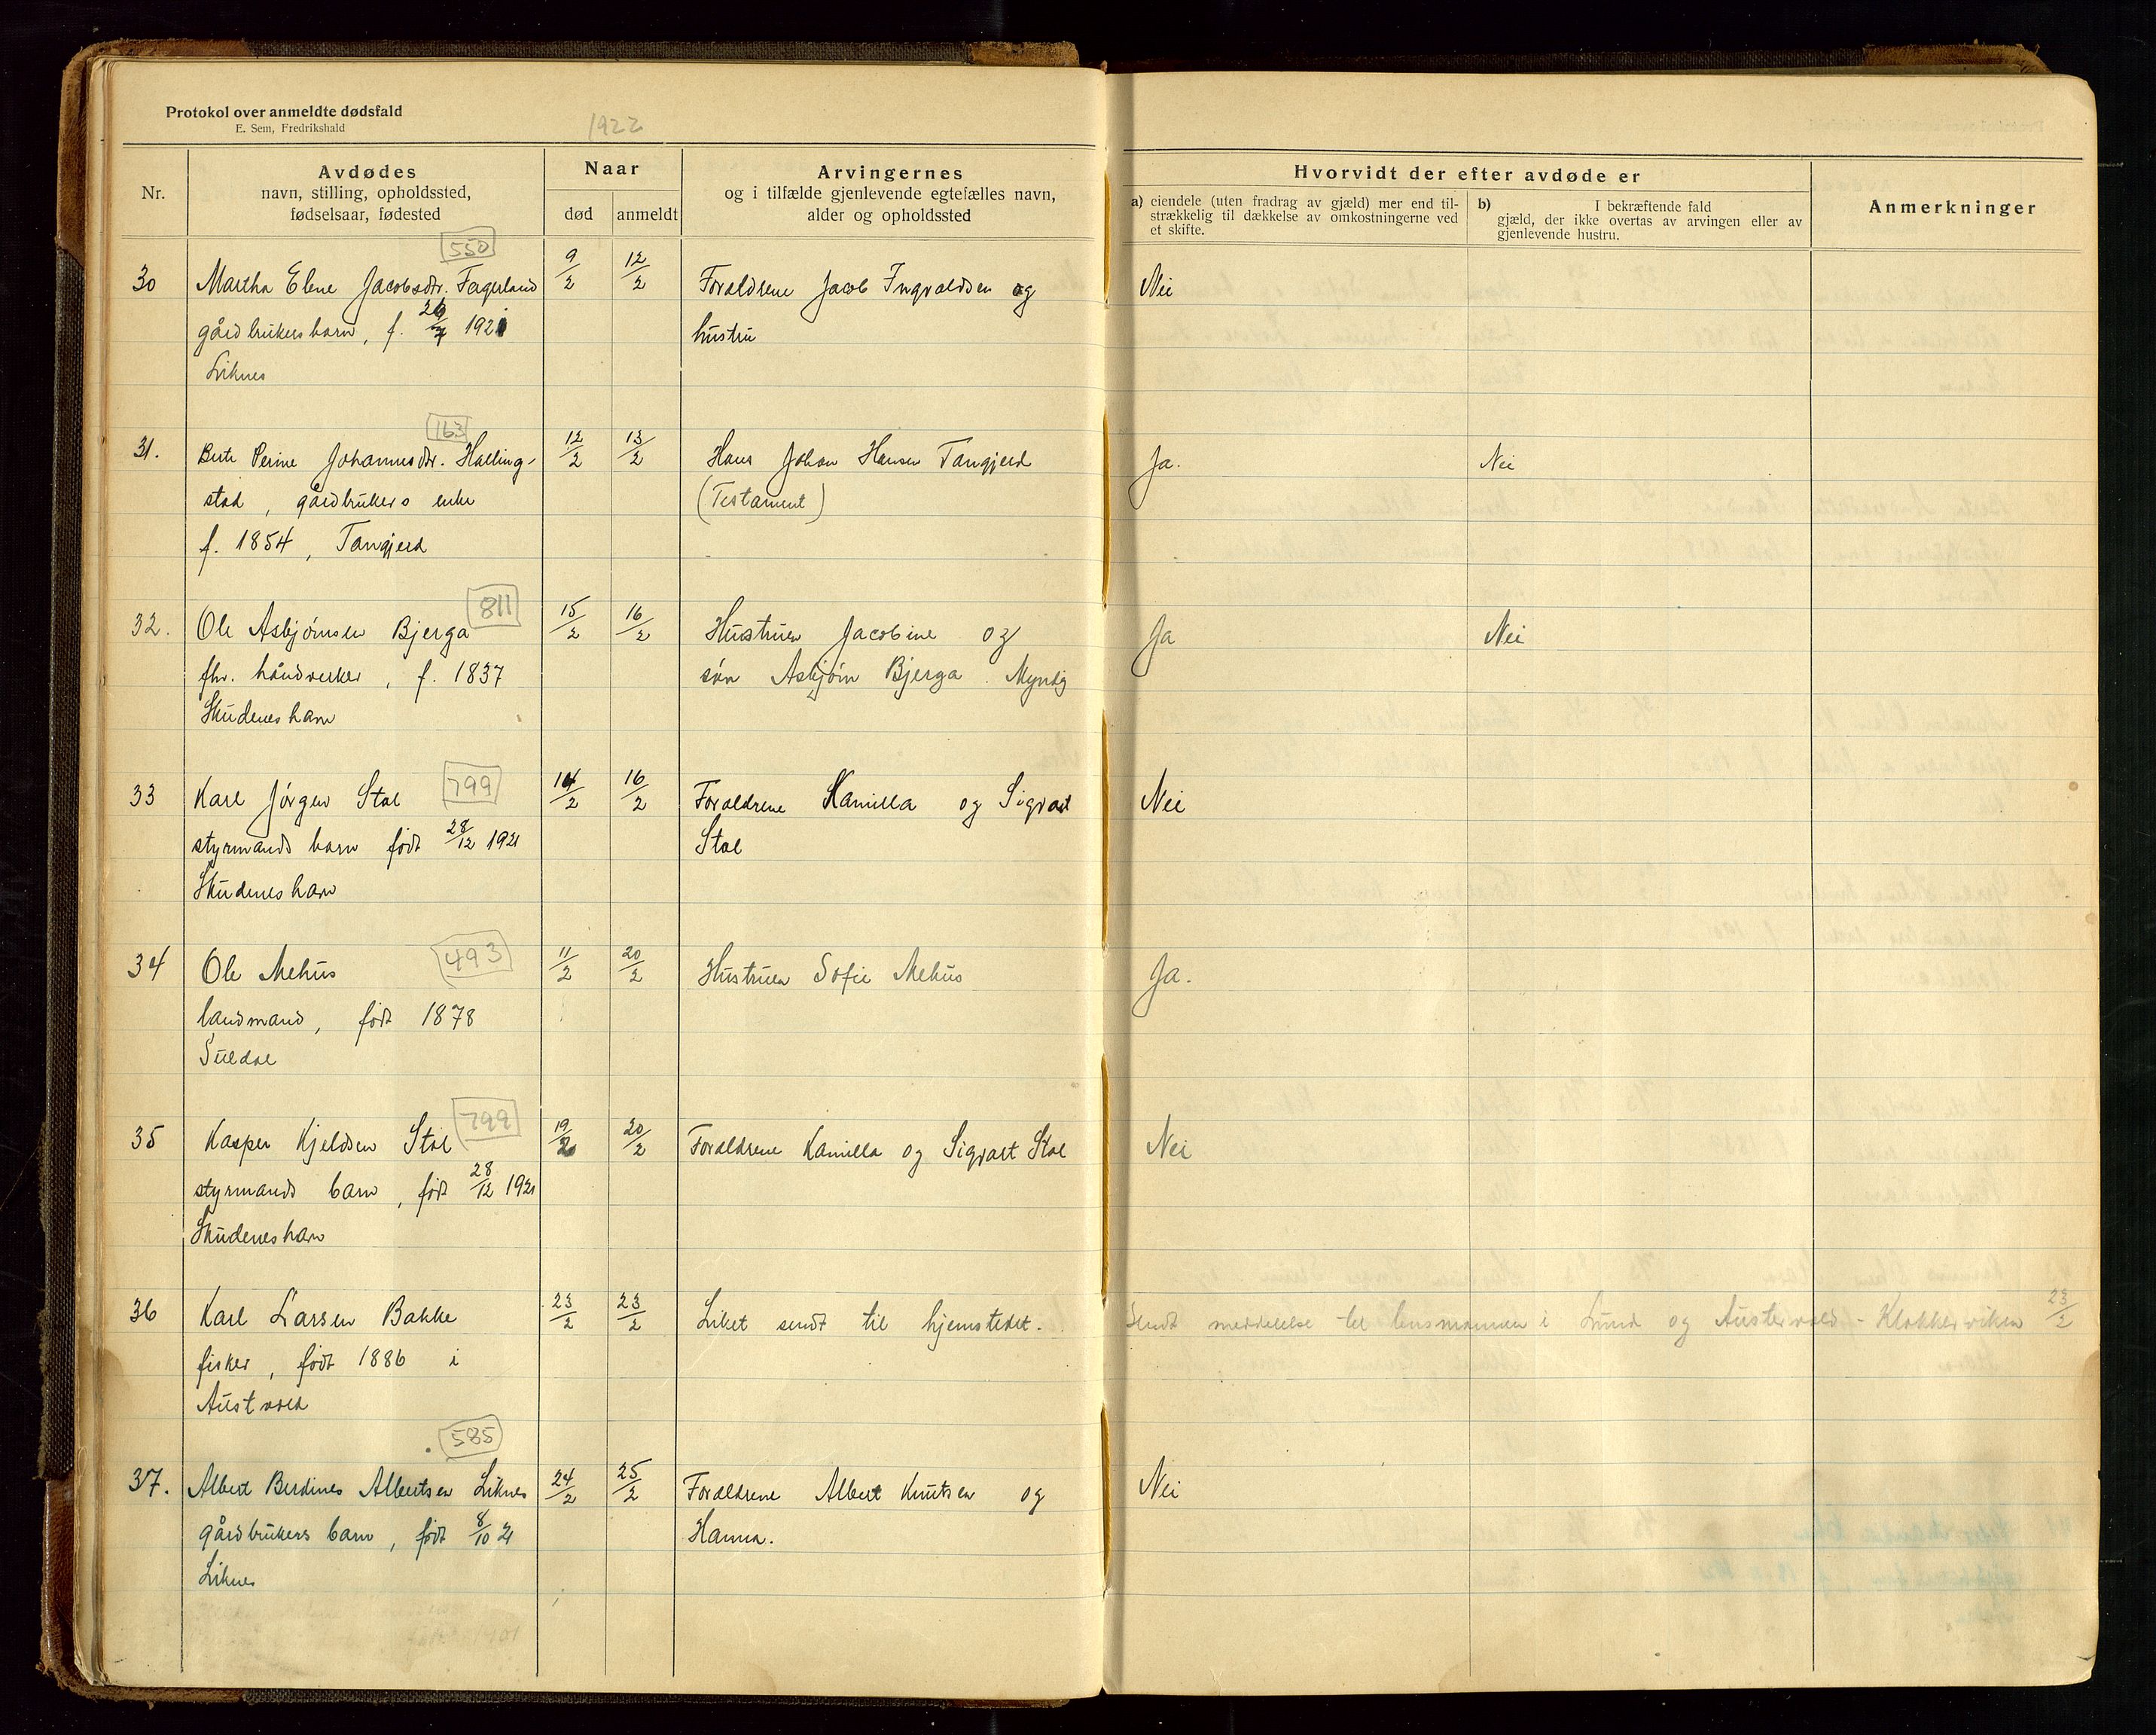 Protokol over anmeldte dødsfald
E. Sem, Fredrikshald
1922
Nr.
Avdødes
navn, stilling, opholdssted,
fødselsaar, fødested
Naar
død
anmeldt
Arvingernes
og i tilfælde gjenlevende egtefælles navn,
alder og opholdssted
Hvorvidt der efter avdøde er
a) eiendele (uten fradrag av gjæld) mer end til-
strækkelig til dækkelse av omkostningerne ved
et skifte.
b) I bekræftende fald
gjæld, der ikke overtas av arvingen eller av
gjenlevende hustru.
Anmerkninger
550
30 Martha Elene Jacobsdtr. Fagerland 9/2 12/2 Forældrene Jacob Ingvaldsen og Nei
gårdbrukers barn, f. 26/7 1921 hustru
Liknes
163
31. Berte Perine Johannesdtr. Halling- 12/2 13/2 Hans Johan Hansen Tangjerd Ja. Nei
stad, gårdbrukers enke (Testament)
f. 1854, Tangjerd
811
32. Ole Asbjørnsen Bjerga 15/2 16/2 Hustruen Jacobine og Ja Nei
fhv. håndverker, f. 1837 søn Asbjørn Bjerga. Myndig
Skudeneshavn
33 Karl Jörgen Stol 799 14/2 16/2 Forældrene Kamilla og Sigvart Nei
styrmands barn født 28/12 1921 Stol
Skudeneshavn
34 Ole Mehus 493 11/2 20/2 Hustruen Sofie Mehus Ja.
landmand, født 1878
Suldal
35 Kasper Kjeldsen Stol 799 19/2 20/2 Forældrene Kamilla og Sigvart Stol Nei
styrmands barn, født 28/12 1921
Skudeneshavn
36 Karl Larsen Bakke 23/2 23/2 Liket sendt til hjemstedet. Sendt meddelelse til lensmannen i Sund og Austevold - Klokkerviken 23/2
fisker, født 1886 i
Austvold
585
37. Albert Berdines Albertsen Liknes 24/2 25/2 Forældrene Albert Knutsen og Nei
gårdbrukers barn, født 8/10 21 Hanna.
Liknes